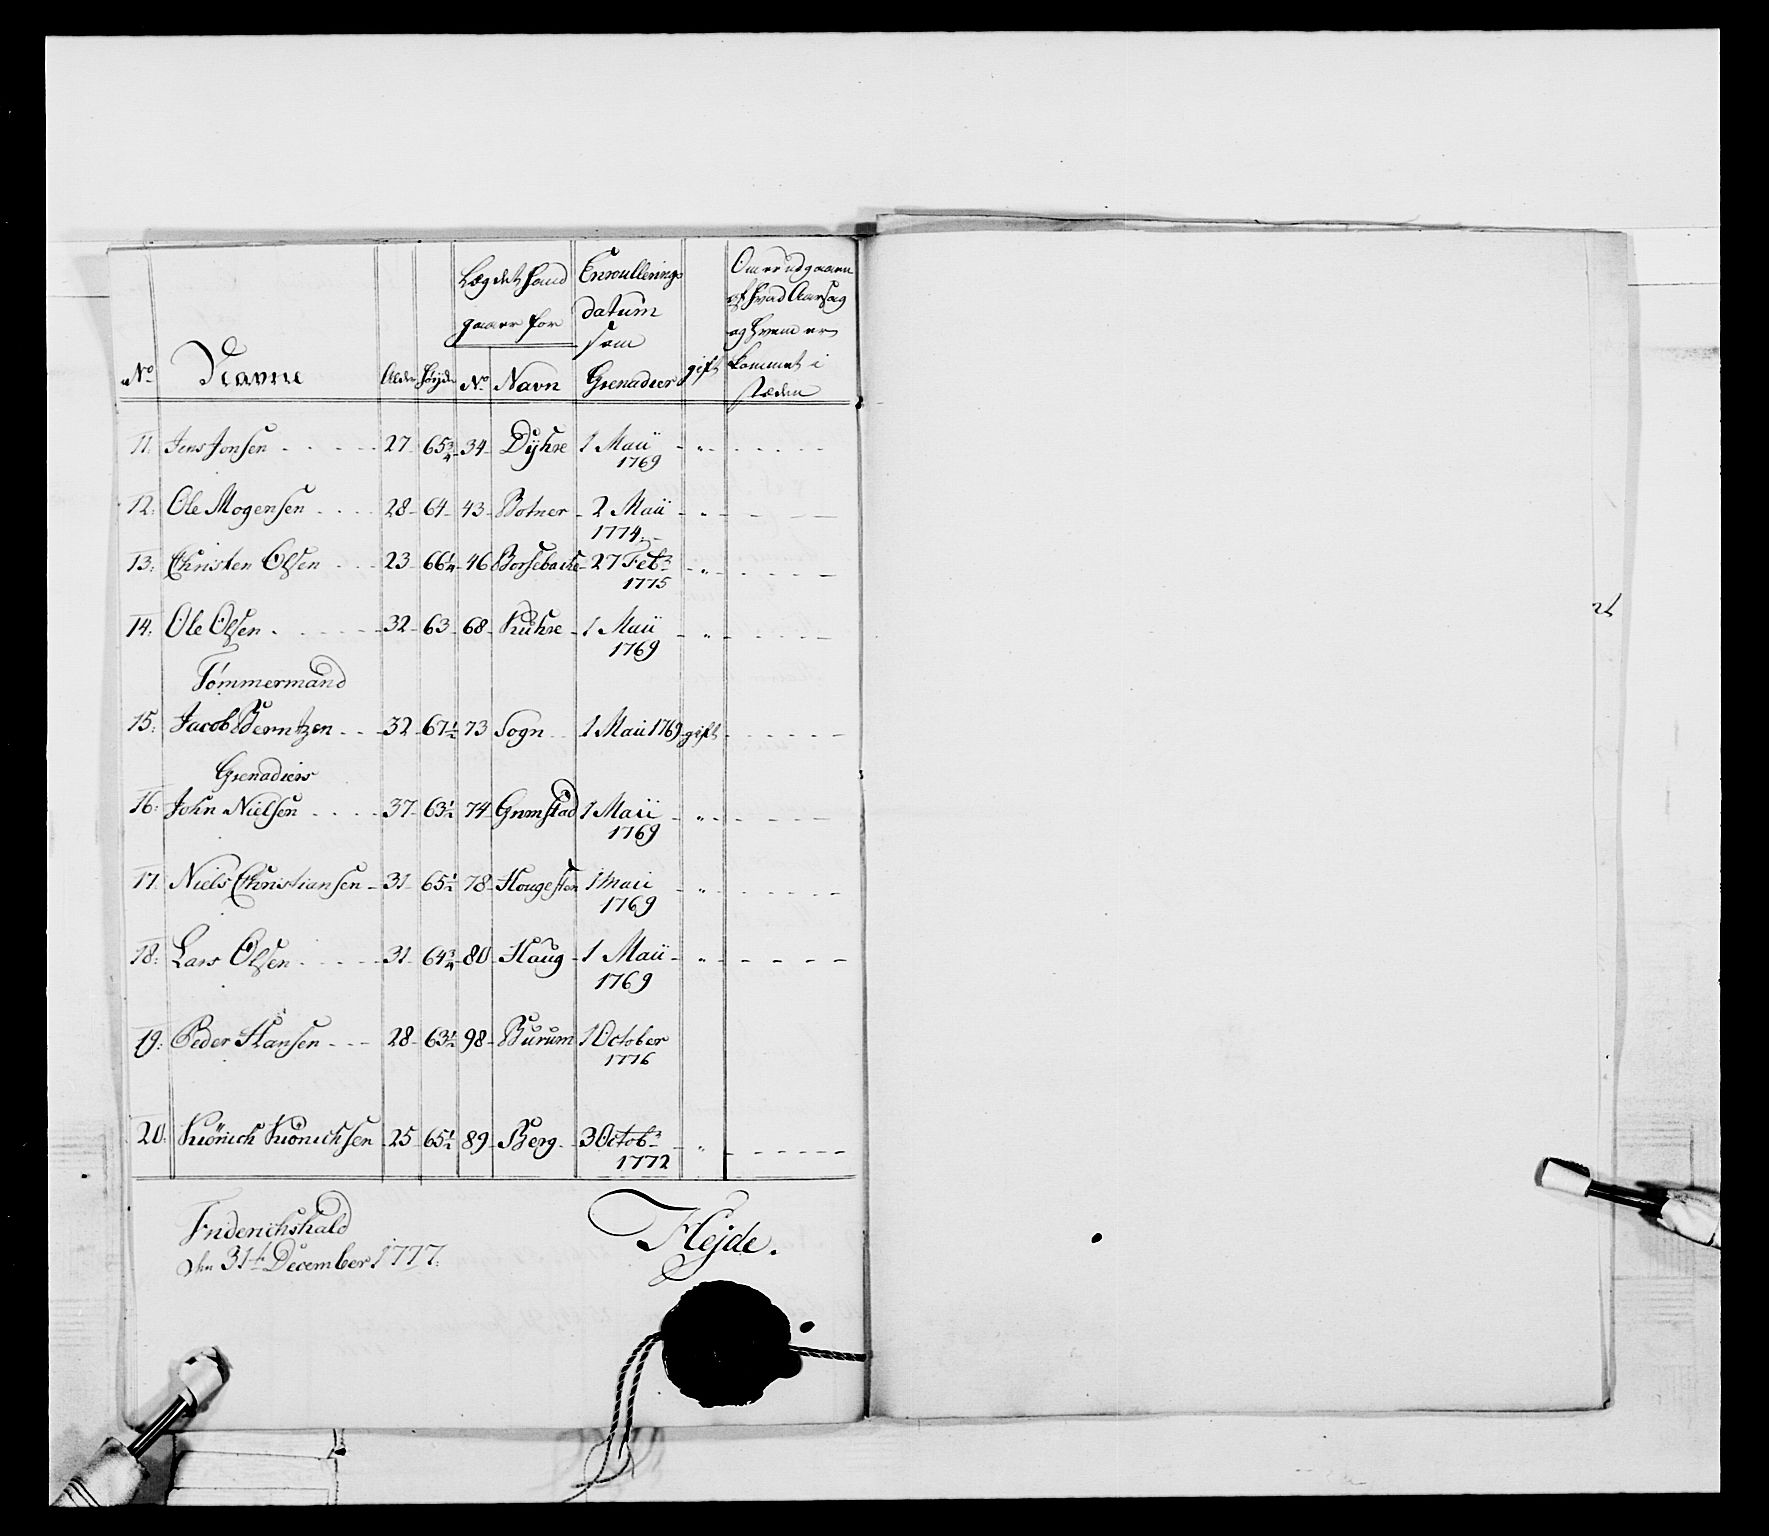 No Navne Alder Høyde
Lægdet hand gaaer for
No Navn
Enroullerings datum som Grenadeer
gift
Om er udgaaen af hvad Aarsag og hvem er kommet i stæden
11: Jens Jonsen 27 65 3/4 34 Dÿhre 1 Maii 1769 "
12: Ole Mogensen 28 64 43 Botner 2 Maii 1774 "
13: Christen Olsen 23 66 1/4 46 Borsebacke 27 Febr 1775 "
14: Ole Olsen 32 63 68 Kuhre 1 Maii 1769 "
Tömmermand
15: Jacob Berntzen 32 67 1/2 73 Sogn 1 Maii 1769 gift
Grenadiers
16: John Nielsen 37 63 1/2 74 Grimstad 1 Maii 1769 "
17: Niels Christiansen 31 65 1/2 78 Hougesten 1 maii 1769 "
18: Lars Olsen 31 64 3/4 80 Haug 1 Maii 1769 "
19: Peder Hansen 28 63 1/2 98 Burum 1 October 1776
20: Kiönich Kiönichsen 25 65 1/2 89 Berg 3 Octobr 1772 "
Friderichshald
den 31te December 1777.
Hejde.